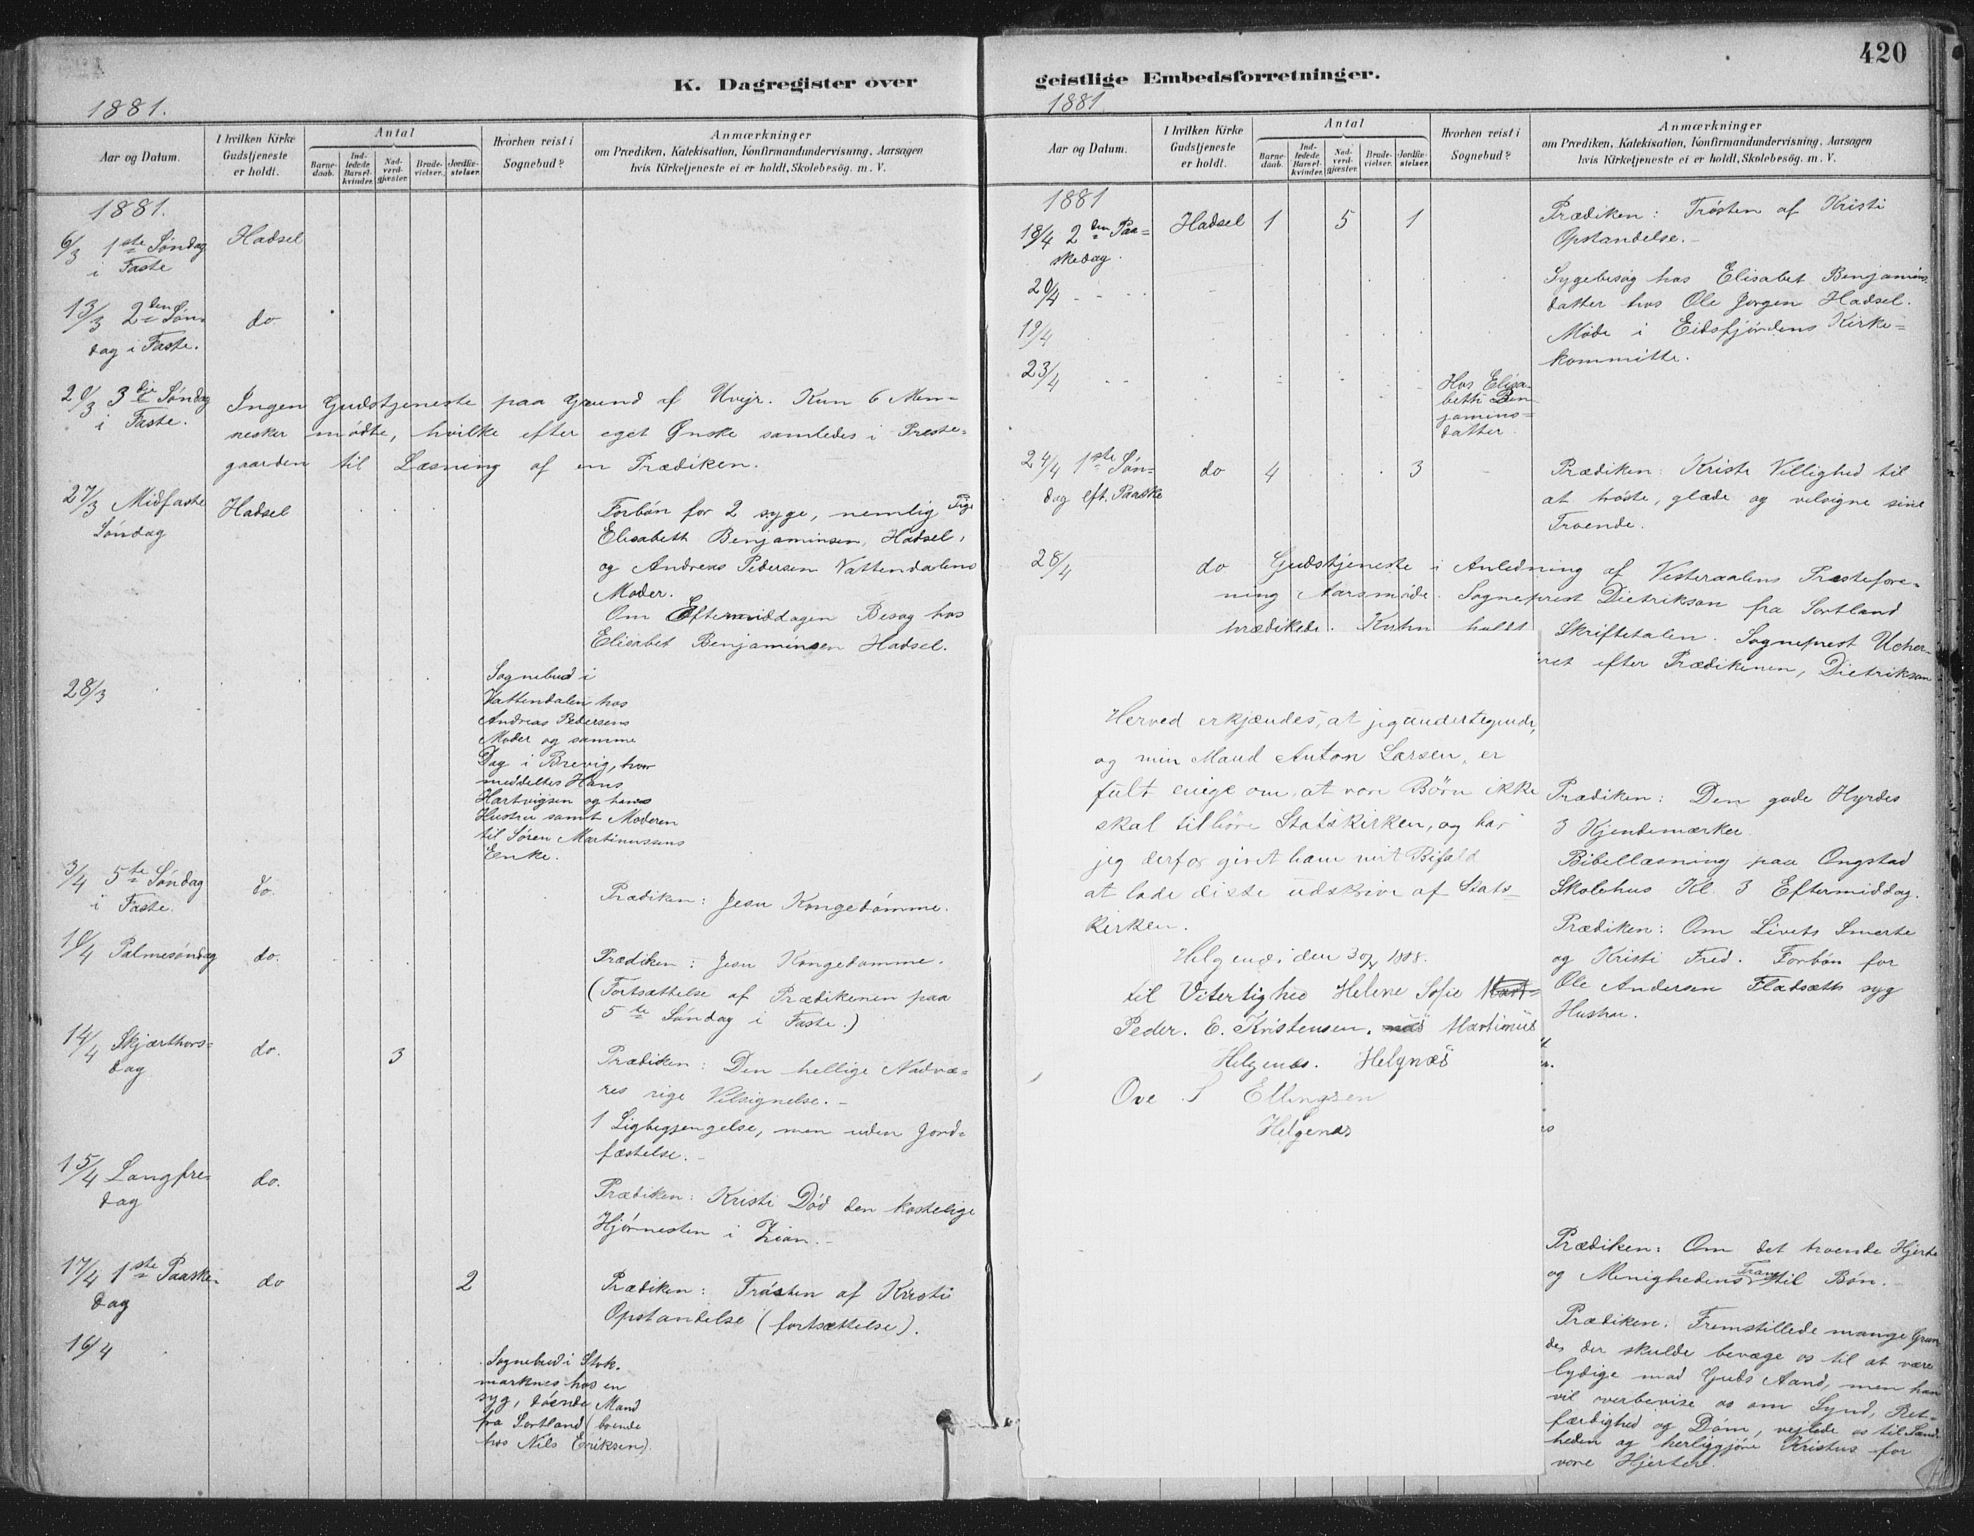 K. Dagregister over
1881.
Aar og Datum.
I hvilken Kirke Gudstjeneste er holdt.
Antal
Barnedaab.
Indledede Barselkvinder.
Nadverdgjæster.
Brudevielser.
Jordfæstelser.
Hvorhen reist i Sognebud?
Anmærkninger
om Prædiken, Katekisation, Konfirmandundervisning, Aarsagen
hvis Kirketjeneste ei er holdt, Skolebesøg. m. V.
1881.
6/3 1ste Søndag Hadsel
i Faste
13/3 2den Søn- do
dag i Faste.
20/3 3die Søndag Ingen Gudstjeneste paa Grund af Uveir. Kun 6 Men-
i Faste. nesker mødte, hvilke efter eget Ønske samledes i Preste-
gaarden til Læsning af en Prædiken.
27/3 Midfaste Hadsel Forbøn for 2 syge, nemlig Pige
Søndag Elisabeth Benjaminsen, Hadsel,
og Andreas Pedersen Vattendalens
Moder.
Om Eftermiddagen Besøg hos
Elisabet Benjaminsen Hadsel.
28/3 Sognebud i
Vattendalen hos
Andreas Pedersens
Moder og samme
Dag i Brevig, hvor
meddeltes Hans
Hartvigsen og hans
Hustru samt Moderen
til Søren Martinussens
Enke.
3/4 5te Søndag do. Prædiken: Jesu Kongedømme.
i Faste.
10/4 Palmesøndag do. Prædiken: Jesu Kongedømme.
(Fortsættelse af Prædikenen paa
5te Søndag i Faste.)
14/4 Skjærthors- do. 3 Prædiken: Den hellige Nadvæ-
dag res rige Velsignelse. -
1 Ligbegjengelse, men uden Jord-
fæstelse. -
15/4 Langfre- do. Prædiken: Kristi Død den kostelige
dag Hjørnesten i Zion. -
17/4 1ste Paaske- do 2 Prædiken: Trøsten af Kristi
dag Opstandelse (fortsættelse).
16/4 Sognebud i Stok-
marknes hos en
syg, døende Mand
fra Sortland (boende
hos Nils Eriksen).
420
geistlige Embedsforretninger.
1881
Aar og Datum.
I hvilken Kirke Gudstjeneste er holdt.
Antal
Barnedaab.
Indledede Barselkvinder.
Nadverdgjæster.
Brudevielser.
Jordfæstelser.
Hvorhen reist i Sognebud?
Anmærkninger
om Prædiken, Katekisation, Konfirmandundervisning, Aarsagen
hvis Kirketjeneste ei er holdt, Skolebesøg. m. V.
1881
18/4 2den Paa- Hadsel 1 5 1 Prædiken: Trøsten af Kristi
skedag. Opstandelse. -
20/4 Sygebesøg hos Elisabet Benjamins
datter hos Ole Jørgen Hadsel.
19/4 Møde i Eidsfjordens Kirke-
kommitte.
23/4 Hos Elisa-
beth Ben-
jamins-
datter
24/4 1ste Søn- do 4 3 Prædiken: Kristi Villighed til
dag eft. Paaske at trøste, glæde og velsigne sine
Troende.
28/4 do Gudstjeneste i Anledning af Vesteraalens Præstefore-
ning Aarsmøde. Sogneprest Dietrikson fra Sortland
prædikede. Kuhn holdt Skriftetalen. Sogneprest Ucher-
efter Prædikenen, Dietrikson
Herved erkjændes, at jeg undertegnede,
og min Mand Anton Larsen, er
fult enige om, at vore Børn ikke
skal tilhøre Statskirken, og har
jeg derfor givet ham mit Bifald
at lade disse udskrive af Stats-
kirken.
Helgenes den 30/ 1888.
til Viterlighed Helene Sofie
Peder. E. Kristensen. Martinus
Helgenes. Helgnæs
Ove S Ellingsen
Helgenes
Prædiken: Den gode Hyrdes
3 Kjendemærker.
Bibellæsning paa Ongstad
Skolehus Kl. 3 Eftermiddag.
Prædiken: Om Livets Smerte
og Kristi Fred. Forbøn for
Ole Andersen Fladsæths syg
Hustru.
Prædiken: Om det troende Hjerte
og Menighedens Trang til Bøn. -
Prædiken: Fremstillede mange Grun
de, der skulde bevæge os til at være
lydige mod Guds Aand, men han
vil overbevise os om Synd, Ret-
færdighed og Dom, vejlede os til Sand
heden og herliggjøre Kristus for
vore Hjerter.